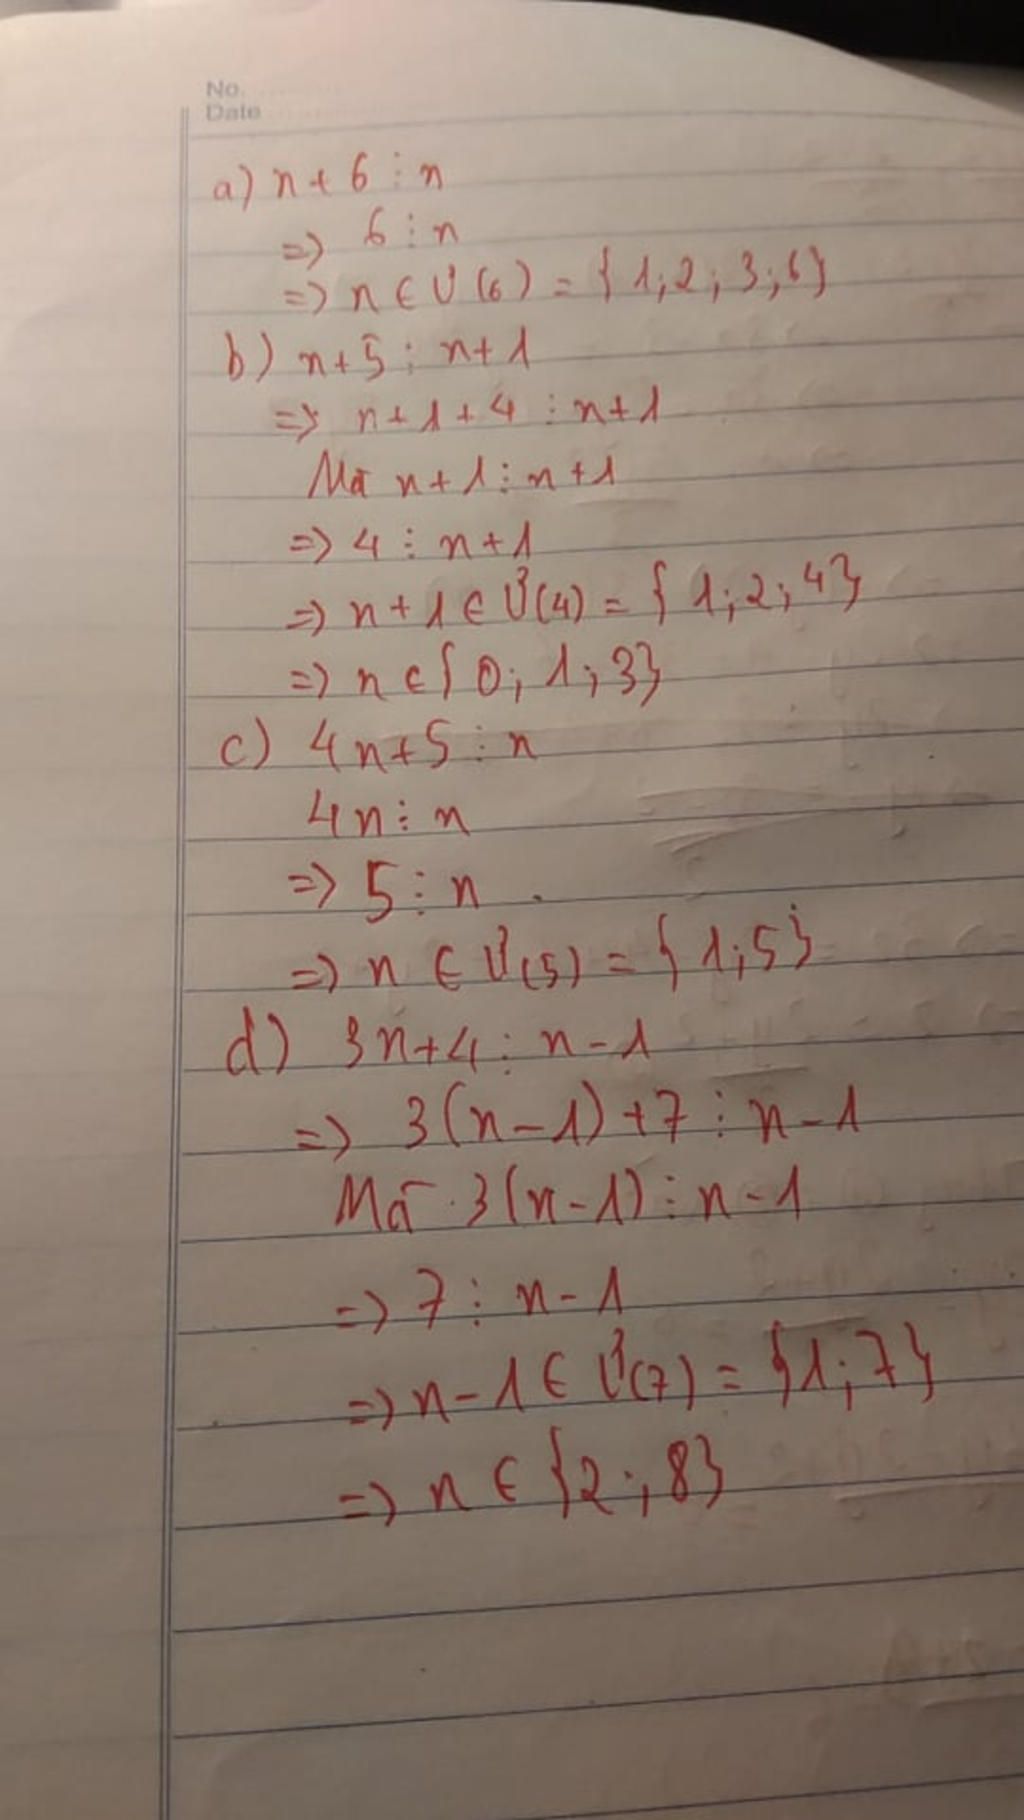 No.
Date
a) n + 6 ⋮ n
=> 6 ⋮ n
=> n ∈ Ư(6) = { 1; 2; 3; 6}
b) n+5 ⋮ n+1
=> n+1+4 ⋮ n+1
Mà n+1 ⋮ n+1
=> 4 ⋮ n+1
=> n+1 ∈ Ư(4) = { 1; 2; 4}
=> n ∈ { 0; 1; 3}
c) 4n+5 ⋮ n
4n ⋮ n
=> 5 ⋮ n
=> n ∈ Ư(5) = { 1; 5}
d) 3n+4 ⋮ n-1
=> 3(n-1)+7 ⋮ n-1
Mà 3(n-1) ⋮ n-1
=> 7 ⋮ n-1
=> n-1 ∈ Ư(7) = {1; 7}
=> n ∈ {2; 8}